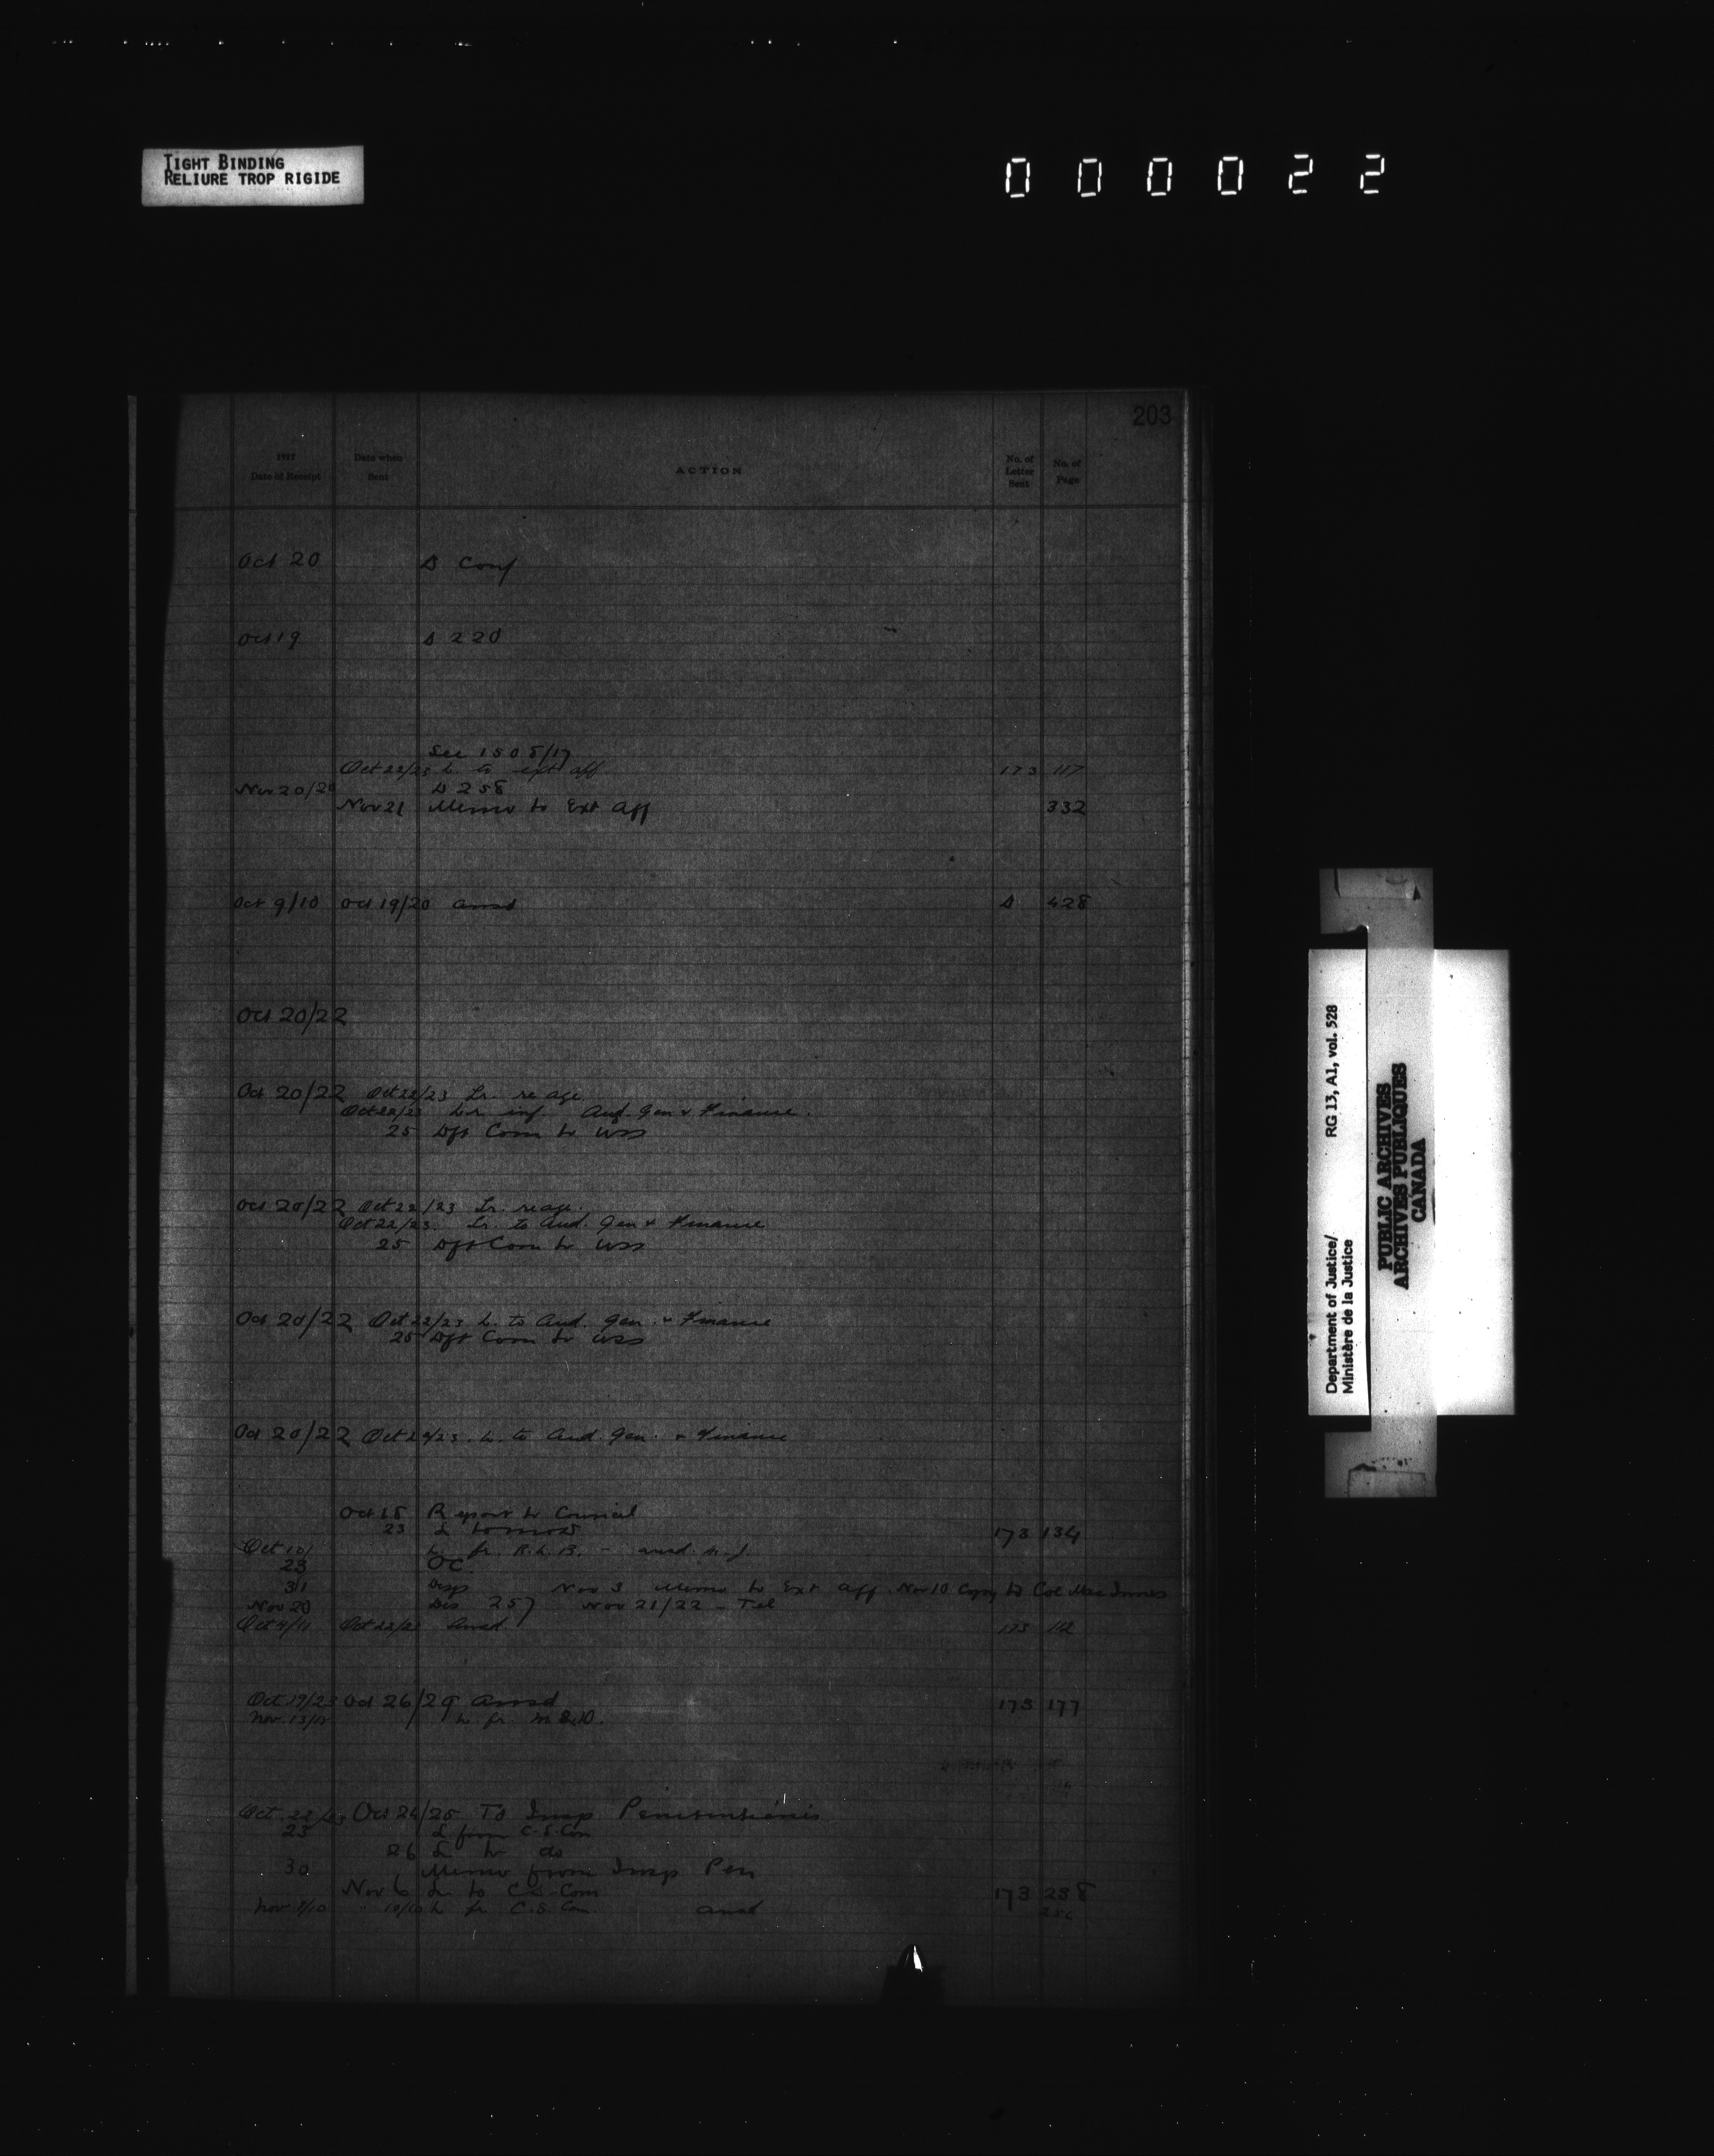 TIGHT BINDING
RELIURE TROP RIGIDE
000022
203
1917
Date of Receipt
Date when
Sent
ACTION
No. of
Letter
Sent
No. of
Page
Oct 20 D Conf
Oct 19 D 220
See 1505/17
Oct 22/23 L. to ext aff 173 117
Nov 20/20 D 258
Nov 21 Memo to Ext Aff 332
Oct 9/10 Oct 19/20 ansd D 428
Oct 20/22
Oct 20/22 Oct 22/23 Lr. re age
Oct 22/23 Lr inf. Aud. Gen & Finance.
25 Dft Com to WSS
Oct 20/22 Oct 22/23 Lr. re age.
Oct 22/23. Lr. to Aud. Gen & Finance
25 Dft Com to WSS
Oct 20/22 Oct 22/23 L. to Aud. Gen. & Finance
25 Dft Com to WSS
Oct 20/22 Oct 22/23. L. to Aud. Gen. & Finance
Oct 15 Report to Council
23 L 173 134
Oct 10/ L. fr. R.L.B. - ansd.
23 OC.
31 Disp Nov 3 Memo to Ext Aff. Nov 10 Copy to Col MacInnes
Nov 20 Dis 257 Nov 21/22 - Tel
Oct 9/11 Oct 22/23 Ansd. 173 112
Oct 19/23 Oct 26/29 ansd 173 177
Nov. 13/15 L. fr.
Oct 22/23 Oct 24/25 To Insp Penitentiaries
23 L from C.S. Com
26 L to do
30 Memo from Insp Pen
Nov 6 Lr to C.S. Com 173 238
Nov 9/10 " 10/10 L fr C.S. Com. ansd
Department of Justice/ RG 13, A1, vol. 528
Ministère de la Justice
PUBLIC ARCHIVES
ARCHIVES PUBLIQUES
CANADA